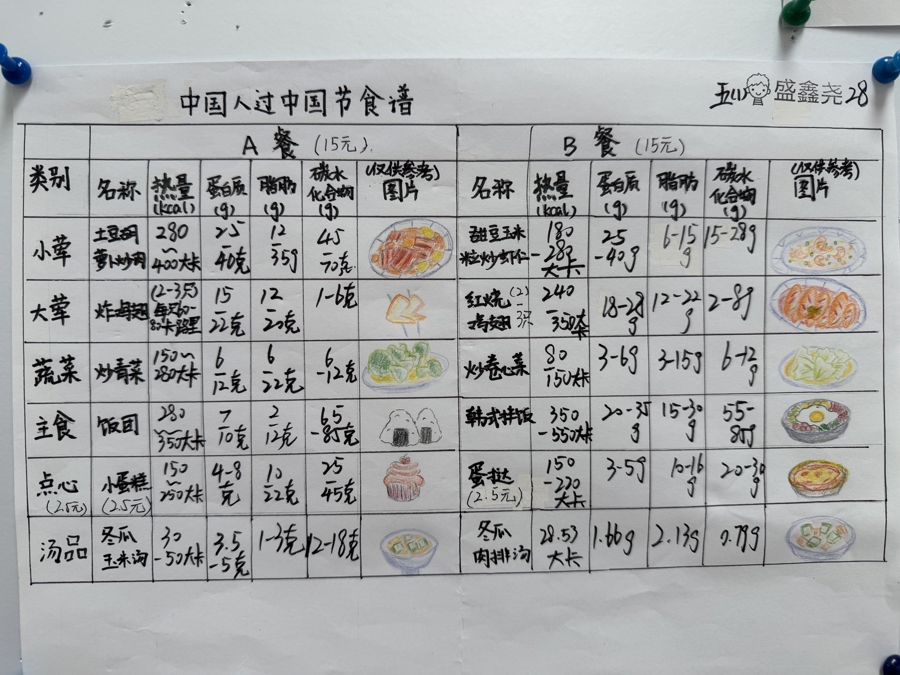 中国人过中国节食谱
五(1) 盛鑫尧 28
A 餐 (15元) B 餐 (15元)
类别 名称 热量(kcal) 蛋白质(g) 脂肪(g) 碳水化合物(g) (仅供参考)图片 名称 热量(kcal) 蛋白质(g) 脂肪(g) 碳水化合物(g) (仅供参考)图片
小荤 土豆胡萝卜炒肉 280-400大卡 25-40克 12-35g 45-70克 甜豆玉米粒炒虾仁 180-280大卡 25-40g 6-15g 15-28g
大荤 炸鸡翅 (2-3只) 80大卡 15-22克 12-20克 1-6克 红烧鸡翅(2)-3只 240-350大卡 18-28g 12-22g 2-8g
蔬菜 炒青菜 150~280大卡 6-12克 6-22克 6-12克 炒卷心菜 80-150大卡 3-6g 3-15g 6-12g
主食 饭团 280~350大卡 7-10克 2-12克 65-85克 韩式拌饭 350-550大卡 20-35g 15-30g 55-85g
点心(2.5元) 小蛋糕(2.5元) 150-250大卡 4-8克 10-22克 25-45克 蛋挞(2.5元) 150-220大卡 3-5g 10-16g 20-30g
汤品 冬瓜玉米汤 30-50大卡 3.5-5克 1-3克 12-18克 冬瓜肉排汤 28.53大卡 1.66g 2.13g 0.79g